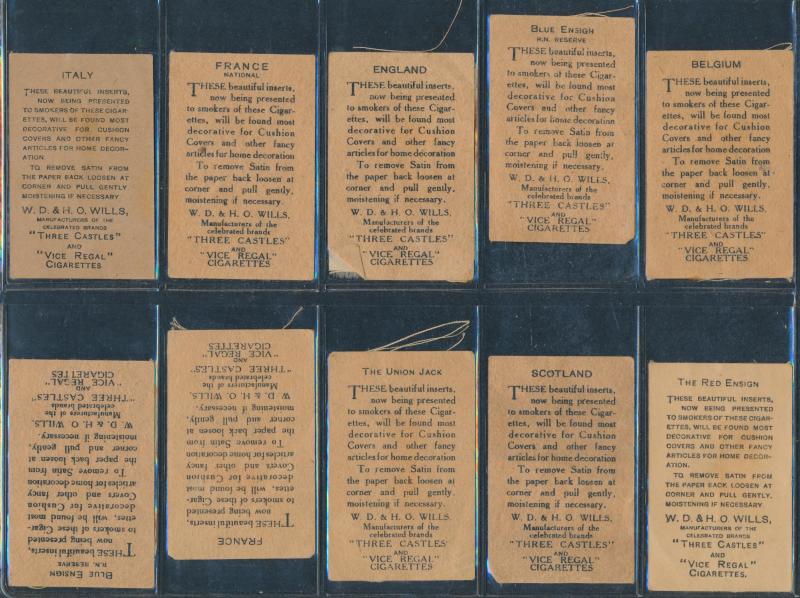 ITALY
THESE BEAUTIFUL INSERTS,
NOW BEING PRESENTED
TO SMOKERS OF THESE CIGAR-
ETTES, WILL BE FOUND MOST
DECORATIVE FOR CUSHION
COVERS AND OTHER FANCY
ARTICLES FOR HOME DECOR-
ATION.
TO REMOVE SATIN FROM
THE PAPER BACK LOOSEN AT
CORNER AND PULL GENTLY,
MOISTENING IF NECESSARY.
W. D. & H. O. WILLS,
MANUFACTURERS OF THE
CELEBRATED BRANDS
"THREE CASTLES"
AND
"VICE REGAL"
CIGARETTES
FRANCE
NATIONAL
THESE beautiful inserts,
now being presented
to smokers of these Cigar-
ettes, will be found most
decorative for Cushion
Covers and other fancy
articles for home decoration
To remove Satin from
the paper back loosen at
corner and pull gently,
moistening if necessary.
W. D. & H. O. WILLS,
Manufacturers of the
celebrated brands
"THREE CASTLES"
AND
"VICE REGAL"
CIGARETTES
ENGLAND
THESE beautiful inserts,
now being presented
to smokers of these Cigar-
ettes, will be found most
decorative for Cushion
Covers and other fancy
articles for home decoration
To remove Satin from
the paper back loosen at
corner and pull gently,
moistening if necessary.
W. D. & H. O. WILLS,
Manufacturers of the
celebrated brands
"THREE CASTLES"
AND
"VICE REGAL"
CIGARETTES
BLUE ENSIGN
R.N. RESERVE
THESE beautiful inserts,
now being presented
to smokers of these Cigar-
ettes, will be found most
decorative for Cushion
Covers and other fancy
articles for home decoration
To remove Satin from
the paper back loosen at
corner and pull gently,
moistening if necessary.
W. D. & H. O. WILLS,
Manufacturers of the
celebrated brands
"THREE CASTLES"
AND
"VICE REGAL"
CIGARETTES
BELGIUM
THESE beautiful inserts,
now being presented
to smokers of these Cigar-
ettes, will be found most
decorative for Cushion
Covers and other fancy
articles for home decoration
To remove Satin from
the paper back loosen at
corner and pull gently,
moistening if necessary.
W. D. & H. O. WILLS,
Manufacturers of the
celebrated brands
"THREE CASTLES"
AND
"VICE REGAL"
CIGARETTES
BLUE ENSIGN
R.N. RESERVE
THESE beautiful inserts,
now being presented
to smokers of these Cigar-
ettes, will be found most
decorative for Cushion
Covers and other fancy
articles for home decoration
To remove Satin from
the paper back loosen at
corner and pull gently,
moistening if necessary.
W. D. & H. O. WILLS,
Manufacturers of the
celebrated brands
"THREE CASTLES"
AND
"VICE REGAL"
CIGARETTES
FRANCE
THESE beautiful inserts,
now being presented
to smokers of these Cigar-
ettes, will be found most
decorative for Cushion
Covers and other fancy
articles for home decoration
To remove Satin from
the paper back loosen at
corner and pull gently,
moistening if necessary.
W. D. & H. O. WILLS,
Manufacturers of the
celebrated brands
"THREE CASTLES"
AND
"VICE REGAL"
CIGARETTES
THE UNION JACK
THESE beautiful inserts,
now being presented
to smokers of these Cigar-
ettes, will be found most
decorative for Cushion
Covers and other fancy
articles for home decoration
To remove Satin from
the paper back loosen at
corner and pull gently,
moistening if necessary.
W. D. & H. O. WILLS,
Manufacturers of the
celebrated brands
"THREE CASTLES"
AND
"VICE REGAL"
CIGARETTES
SCOTLAND
THESE beautiful inserts,
now being presented
to smokers of these Cigar-
ettes, will be found most
decorative for Cushion
Covers and other fancy
articles for home decoration
To remove Satin from
the paper back loosen at
corner and pull gently,
moistening if necessary.
W. D. & H. O. WILLS,
Manufacturers of the
celebrated brands
"THREE CASTLES"
AND
"VICE REGAL"
CIGARETTES
THE RED ENSIGN
THESE BEAUTIFUL INSERTS,
NOW BEING PRESENTED
TO SMOKERS OF THESE CIGAR-
ETTES, WILL BE FOUND MOST
DECORATIVE FOR CUSHION
COVERS AND OTHER FANCY
ARTICLES FOR HOME DECOR-
ATION.
TO REMOVE SATIN FROM
THE PAPER BACK LOOSEN AT
CORNER AND PULL GENTLY,
MOISTENING IF NECESSARY
W. D. & H. O. WILLS,
MANUFACTURERS OF THE
CELEBRATED BRANDS
"THREE CASTLES"
AND
"VICE REGAL"
CIGARETTES.